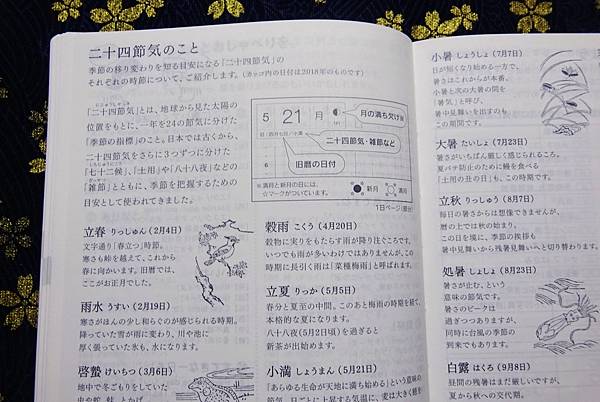 二十四節気のこと
季節の移り変わりを知る目安になる「二十四節気」の
それぞれの時節について、ご紹介します。(カッコ内の日付は2018年のものです)
「二十四節気」とは、地球から見た太陽の
位置をもとに、一年を24の節気に分けた
「季節の指標」のこと。日本では古くから、
二十四節気をさらに3つずつに分けた
「七十二候」、「土用」や「八十八夜」などの
「雑節」とともに、季節を把握するための
目安として使われてきました。
5 21 月
月の満ち欠け
旧 四月七日/小満
二十四節気・雑節など
6
旧暦の日付
※満月と新月の日には、
☆マークがついています。
新月
満月
1日ページ(部分)
立春 りっしゅん (2月4日)
文字通り「春立つ」時節。
寒さも峠を越えて、これから
春に向かいます。旧暦では、
ここがお正月でした。
雨水 うすい (2月19日)
寒さがほんの少し和らぐのが感じられる時期。
降っていた雪が雨に変わり、川や池に
厚く張っていた氷も、水になります。
啓蟄 けいちつ (3月6日)
地中で冬ごもりをしていた
虫や蛇、蛙、とかげ
穀雨 こくう (4月20日)
穀物に実りをもたらす雨が降り注ぐころです。
いつでも雨が多いわけではありませんが、この
時期に長引く雨は「菜種梅雨」と呼ばれます。
立夏 りっか (5月5日)
春分と夏至の中間。このあと梅雨の時期を経て、
本格的な夏になります。
八十八夜(5月2日頃)を過ぎると
新茶が出始めます。
小満 しょうまん (5月21日)
「あらゆる生命が天地に満ち始める」という意味の
節気。日ごとに上昇する気温に、麦は大きく穂を
小暑 しょうしょ (7月7日)
日が短くなり始める一方で、
暑さはこれからが本番。
小暑と次の大暑の間を
「暑気」と呼び、
暑中見舞いを出すのも
この期間です。
大暑 たいしょ (7月23日)
暑さがいちばん厳しく感じられるころ。
夏バテ防止のために鰻を食べる
「土用の丑の日」も、この時期です。
立秋 りっしゅう (8月7日)
毎日の暑さからは想像できませんが、
暦の上では秋の始まり。
この日を境に、季節の挨拶も
暑中見舞いから残暑見舞いへと切り替わります。
処暑 しょしょ (8月23日)
暑さが止む、という
意味の節気です。
暑さのピークは
過ぎつつありますが、
同時に台風の季節の
到来でもあります。
白露 はくろ (9月8日)
昼間の残暑はまだ厳しいですが、
夏から秋への交代期。